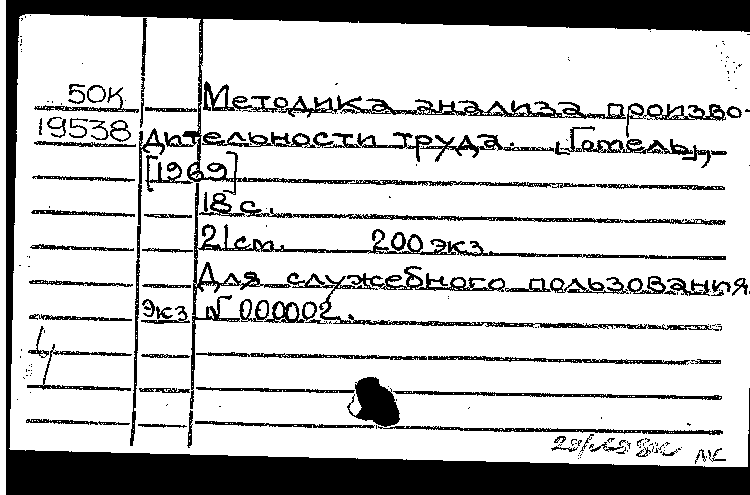 50К Методика анализа произво-
19538 дительности труда. [Гомель],
[1969]
18 с.
21 см. 200 экз.
Для служебного пользования.
Экз № 000002.